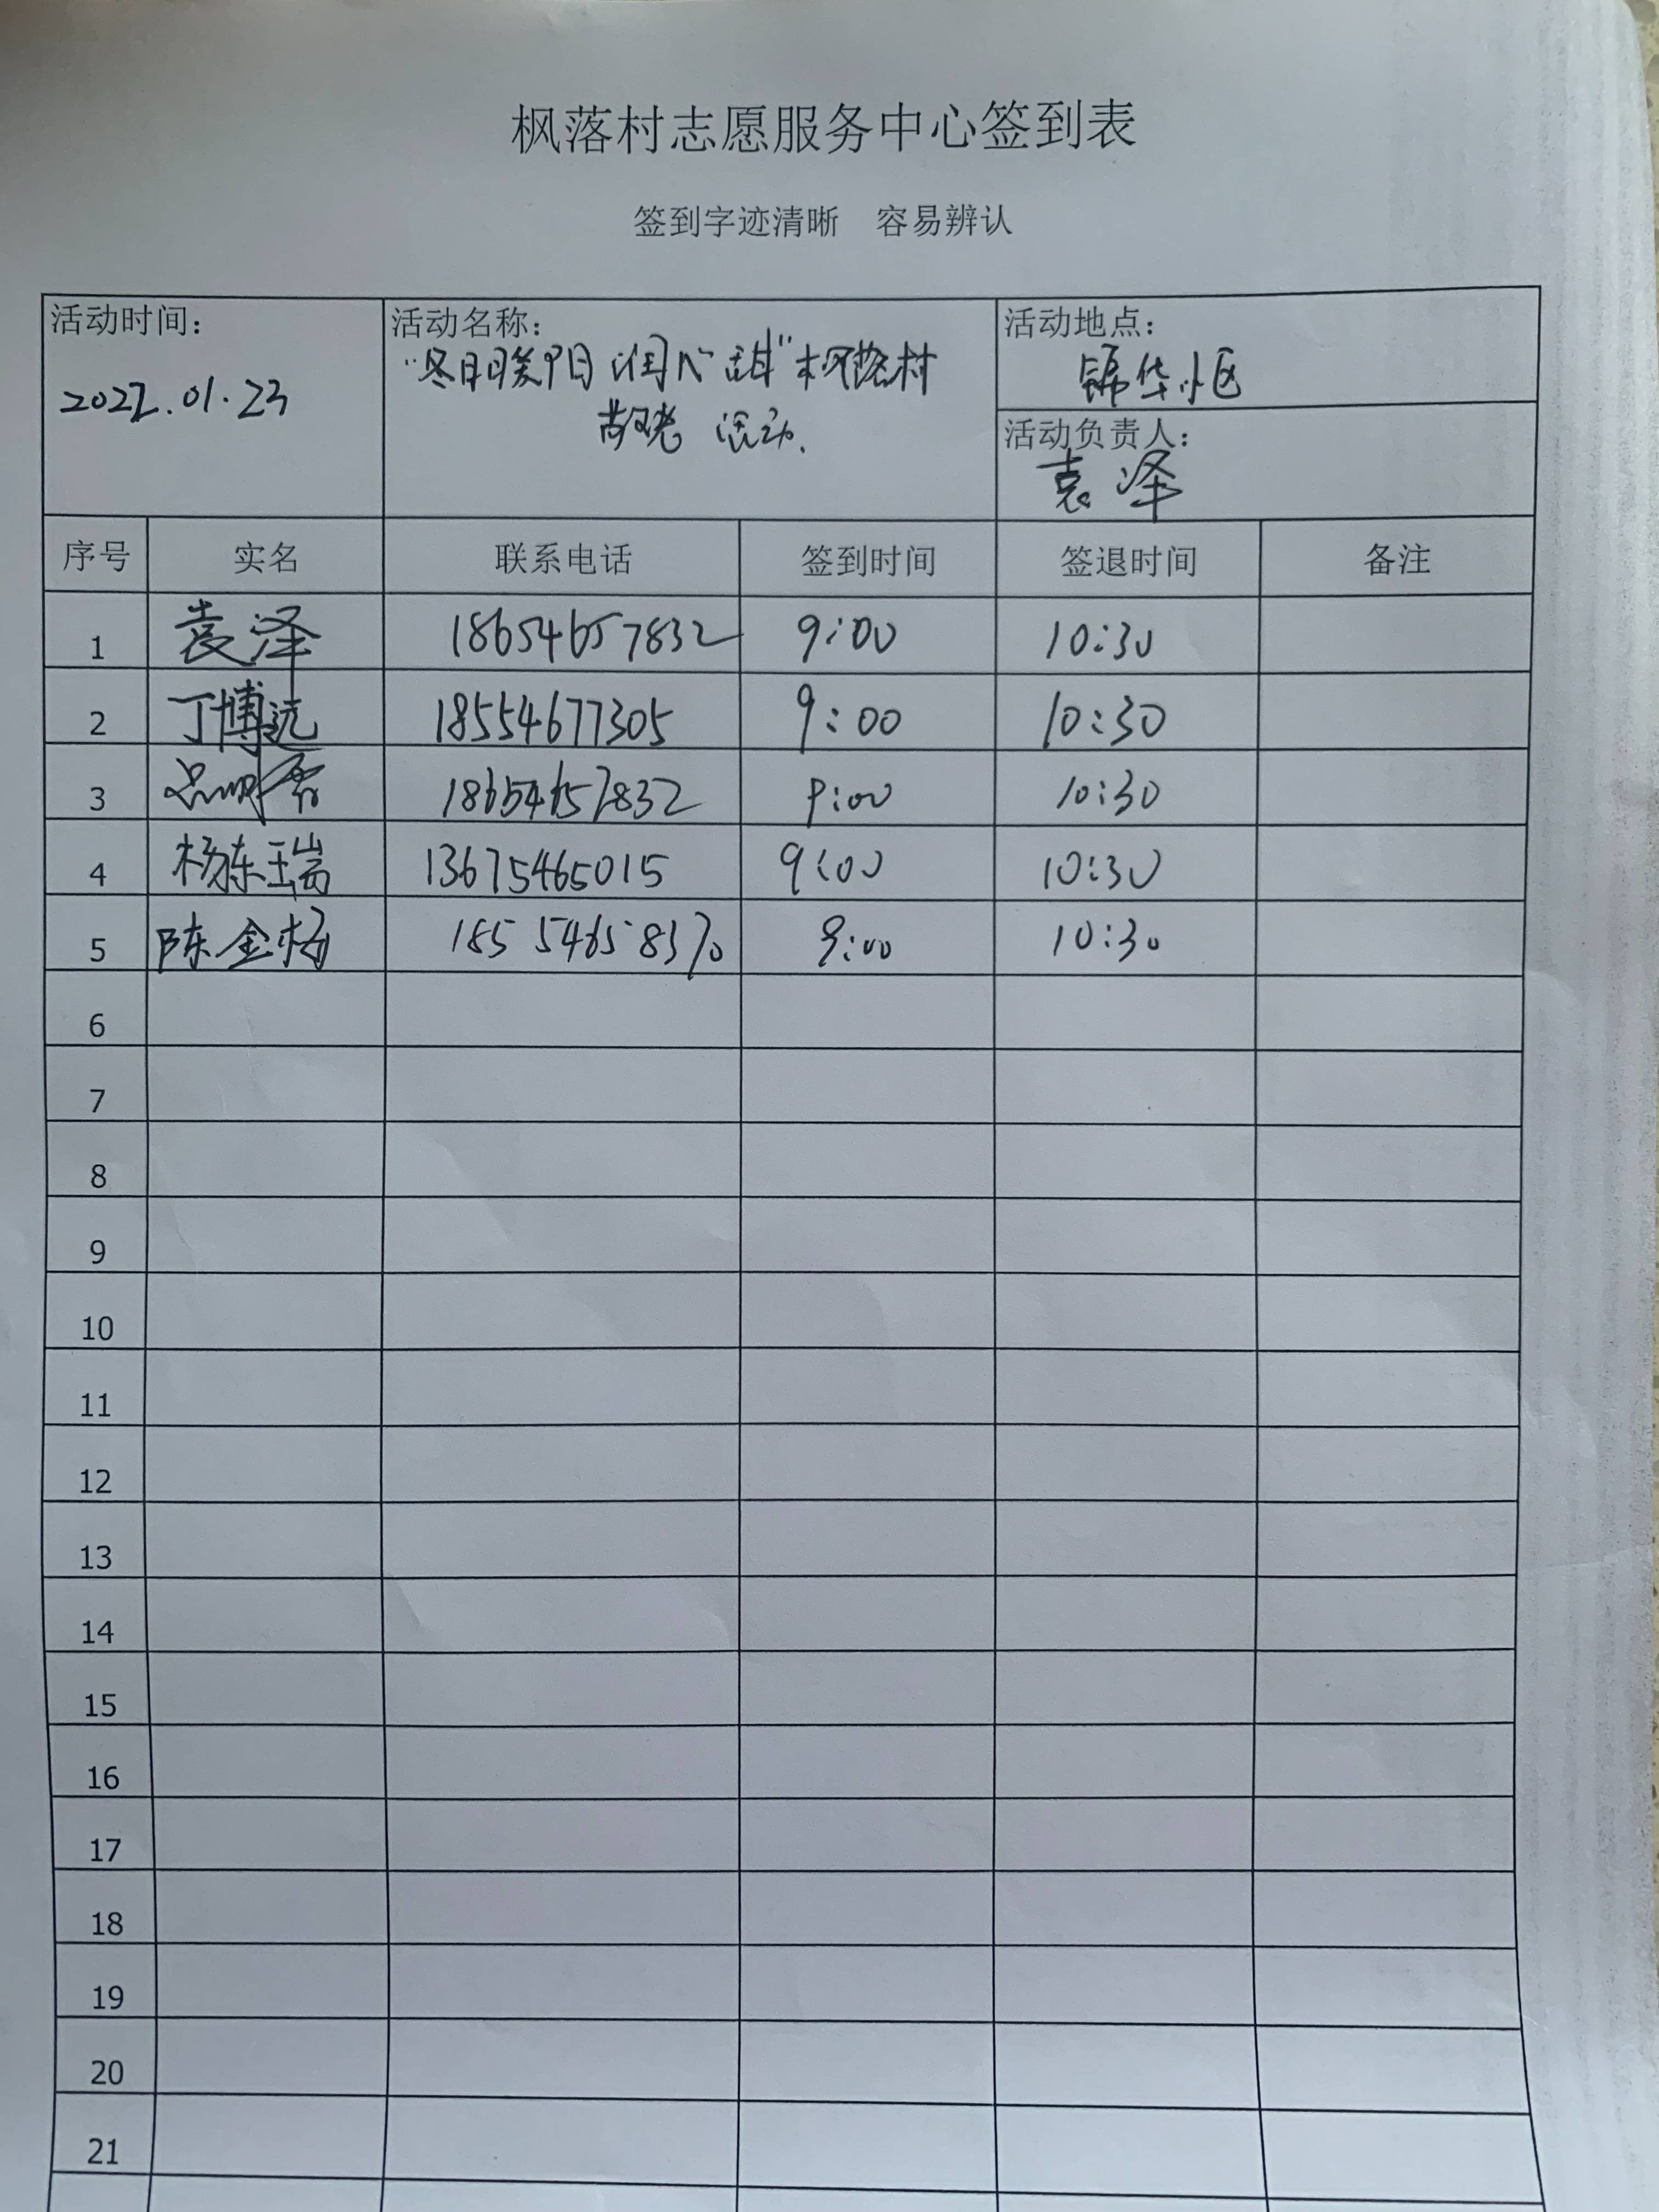 枫落村志愿服务中心签到表
签到字迹清晰 容易辨认
活动时间: 活动名称: 活动地点:
2022.01.23 "冬日暖阳 润心甜"枫落村 锦华小区
敬老 活动.
活动负责人:
袁泽
序号 实名 联系电话 签到时间 签退时间 备注
1 袁泽 18654657832 9:00 10:30
2 丁博远 18554677305 9:00 10:30
3 18654657832 9:00 10:30
4 杨东瑞 13675465015 9:00 10:30
5 陈金杨 18554658370 9:00 10:30
6
7
8
9
10
11
12
13
14
15
16
17
18
19
20
21